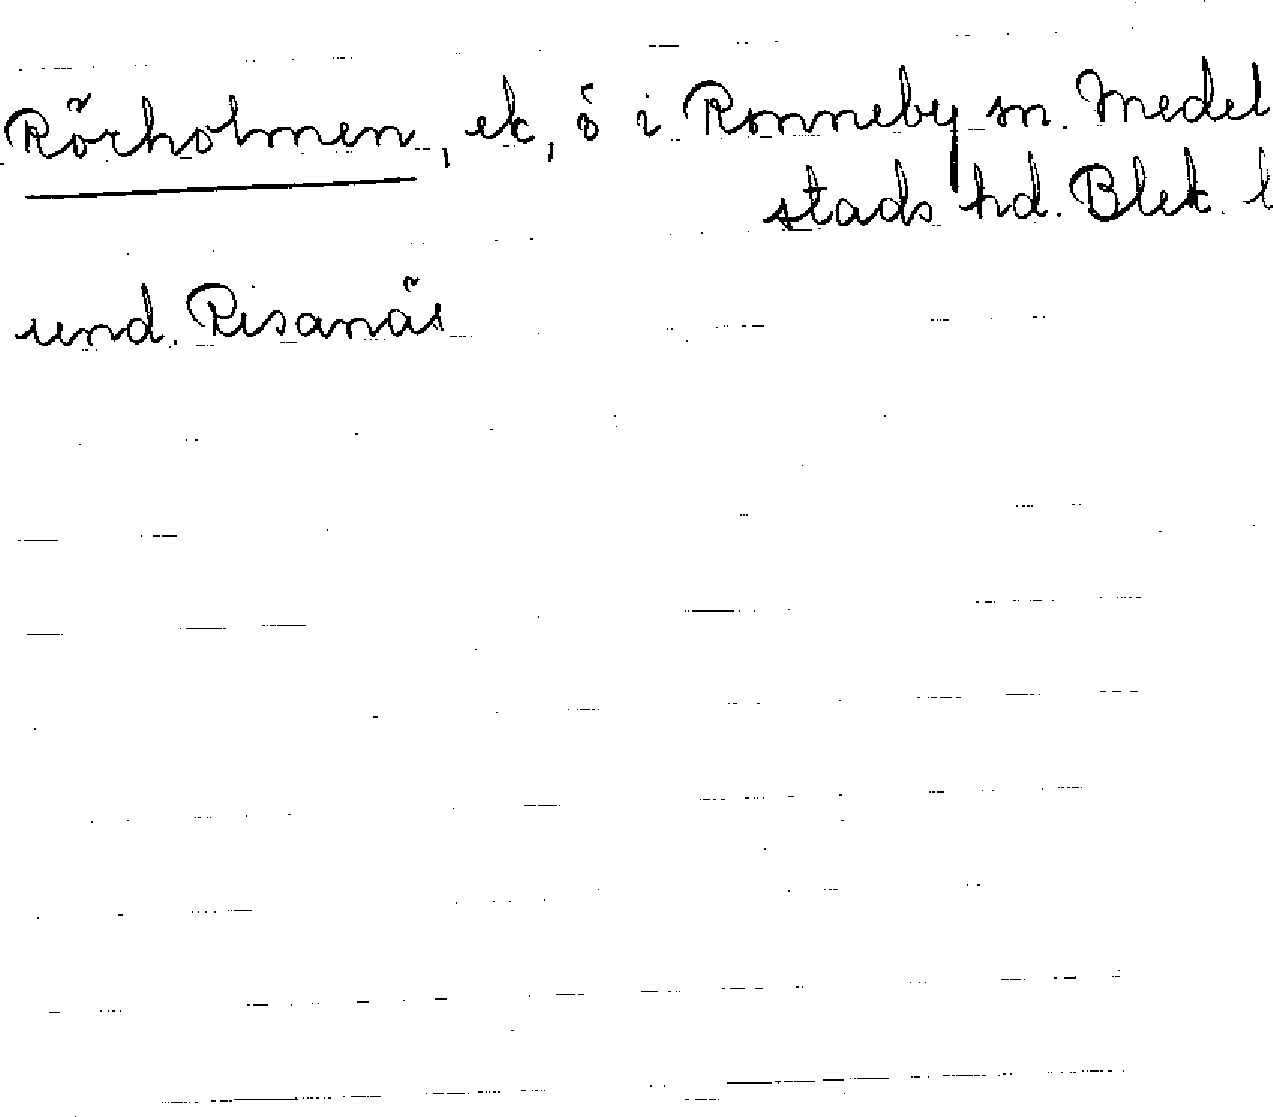 Rörholmen, ek, ö i Ronneby sn. Medel
stads hd. Blek. l
und. Risanäs